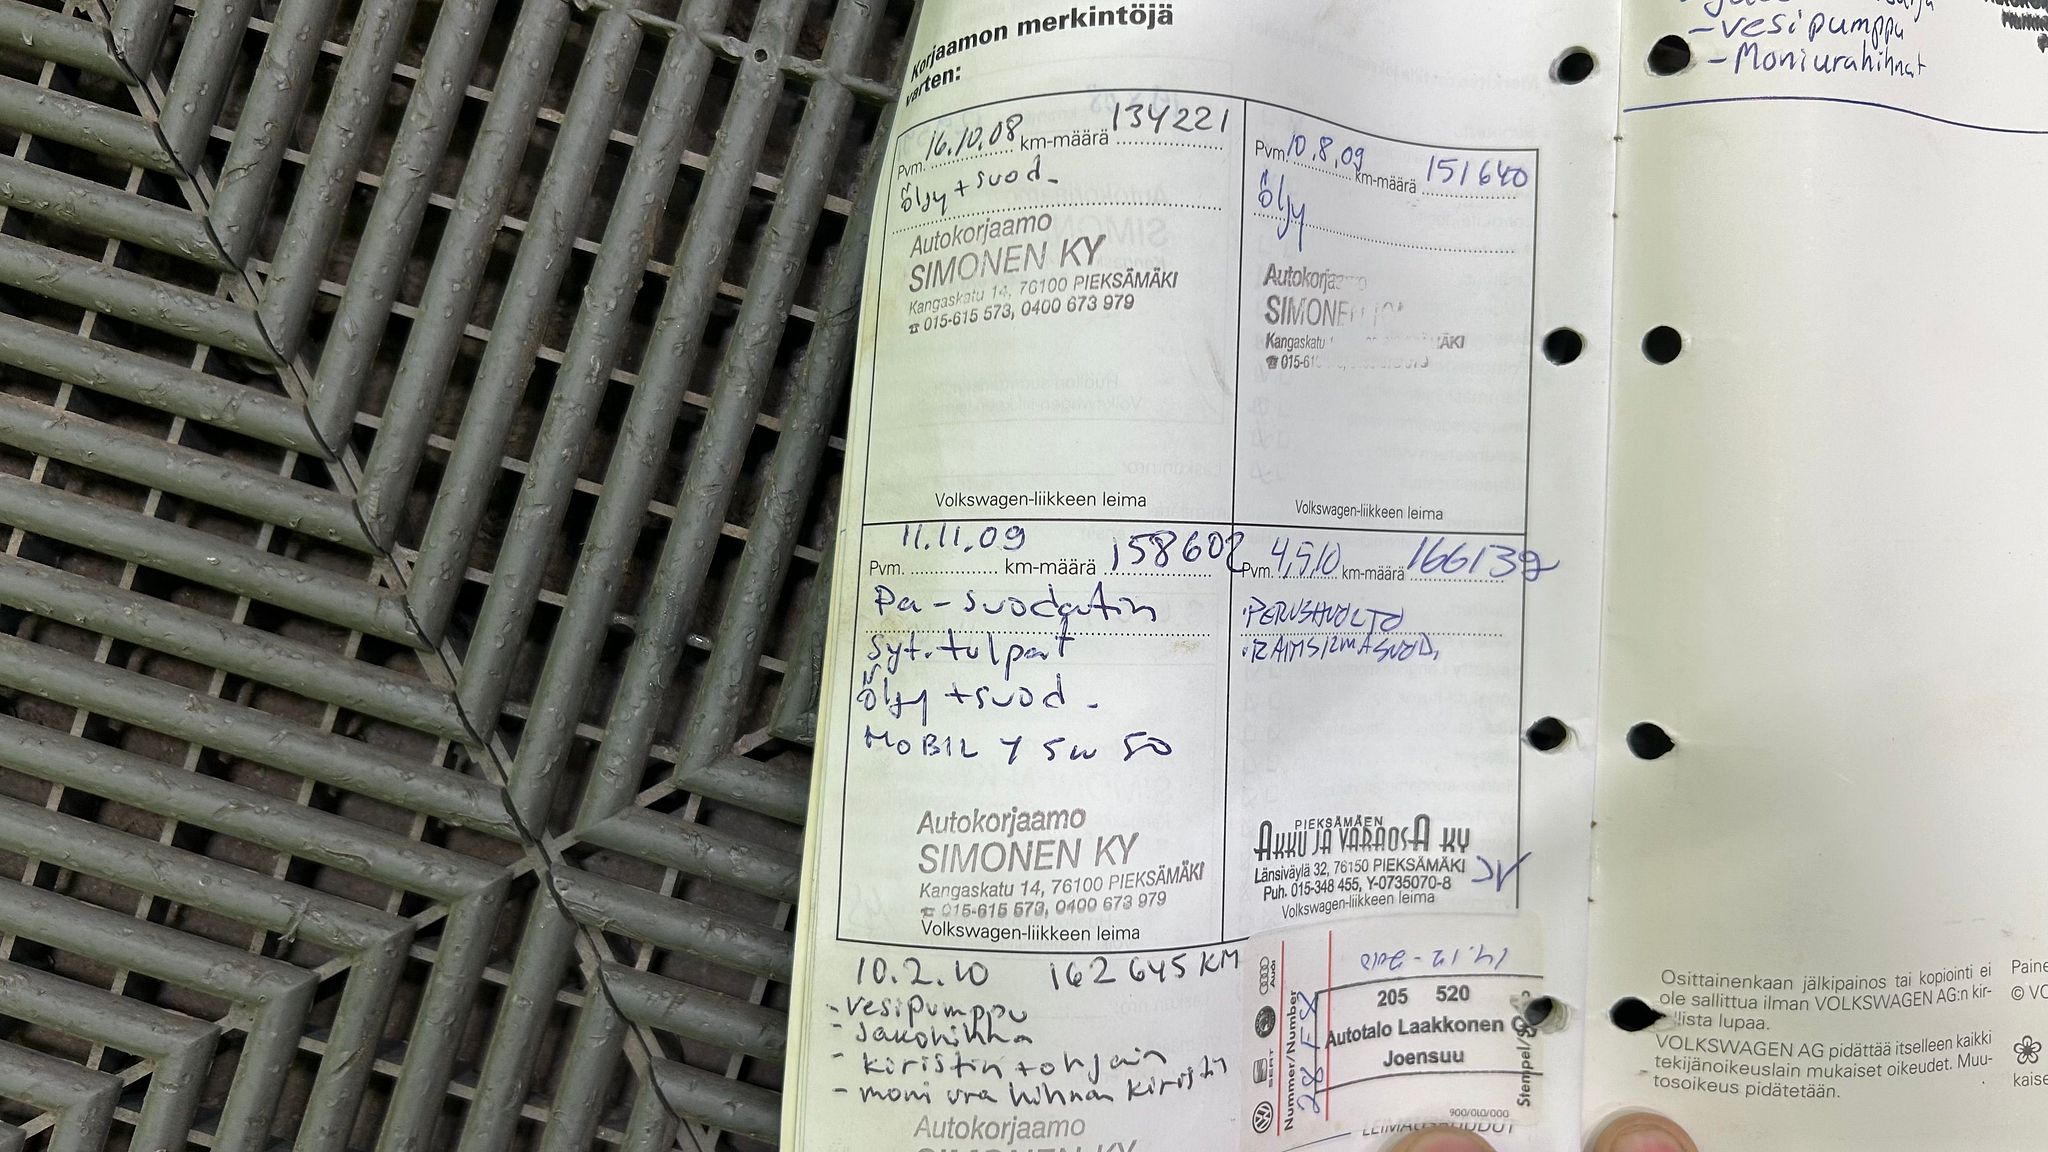 Korjaamon merkintöjä
varten:
Pvm. 16.10.08 km-määrä 134221
öljy + suod.
Autokorjaamo
SIMONEN KY
Kangaskatu 14, 76100 PIEKSÄMÄKI
☎ 015-615 573, 0400 673 979
Volkswagen-liikkeen leima
Pvm. 10.8.09 km-määrä 151640
öljy
Autokorjaamo
SIMONEN
Kangaskatu
Volkswagen-liikkeen leima
11.11.09 158602
Pvm. km-määrä
Pa-suodatin
Syt.tulpat
öljy + suod.
MOBIL 1 5W 50
Autokorjaamo
SIMONEN KY
Kangaskatu 14, 76100 PIEKSÄMÄKI
☎ 015-615 573, 0400 673 979
Volkswagen-liikkeen leima
Pvm. 4.5.10 km-määrä 166132
·PERUSHUOLTO
PIEKSÄMÄEN
AKKU JA VARAOSA KY
Länsiväylä 32, 76150 PIEKSÄMÄKI
Puh. 015-348 455, Y-0735070-8
Volkswagen-liikkeen leima
10.2.10 162645 KM
- vesipumppu
- Jakohihna
- kiristin + ohjain
- moniurahihnan kiristin
Autokorjaamo
SIMONEN KY
14.12-2010
Audi
SEAT
Nummer/Number
205 520
Autotalo Laakkonen
Joensuu
900/010/000
- vesipumppu
- Moniurahihnat
Osittainenkaan jälkipainos tai kopiointi ei
ole sallittua ilman VOLKSWAGEN AG:n kir-
jallista lupaa.
VOLKSWAGEN AG pidättää itselleen kaikki
tekijänoikeuslain mukaiset oikeudet. Muu-
tosoikeus pidätetään.